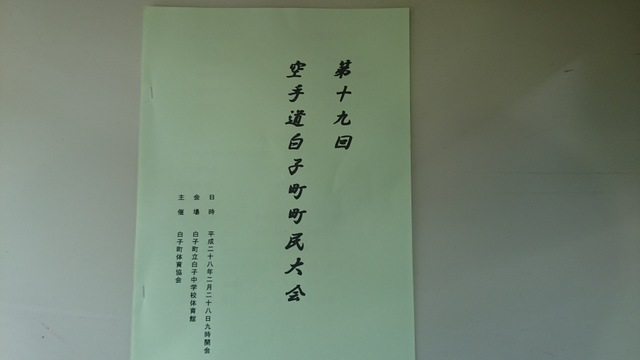 第十九回
空手道白子町町民大会
日時　平成二十八年二月二十八日九時開会
会場　白子町立白子中学校体育館
主催　白子町体育協会